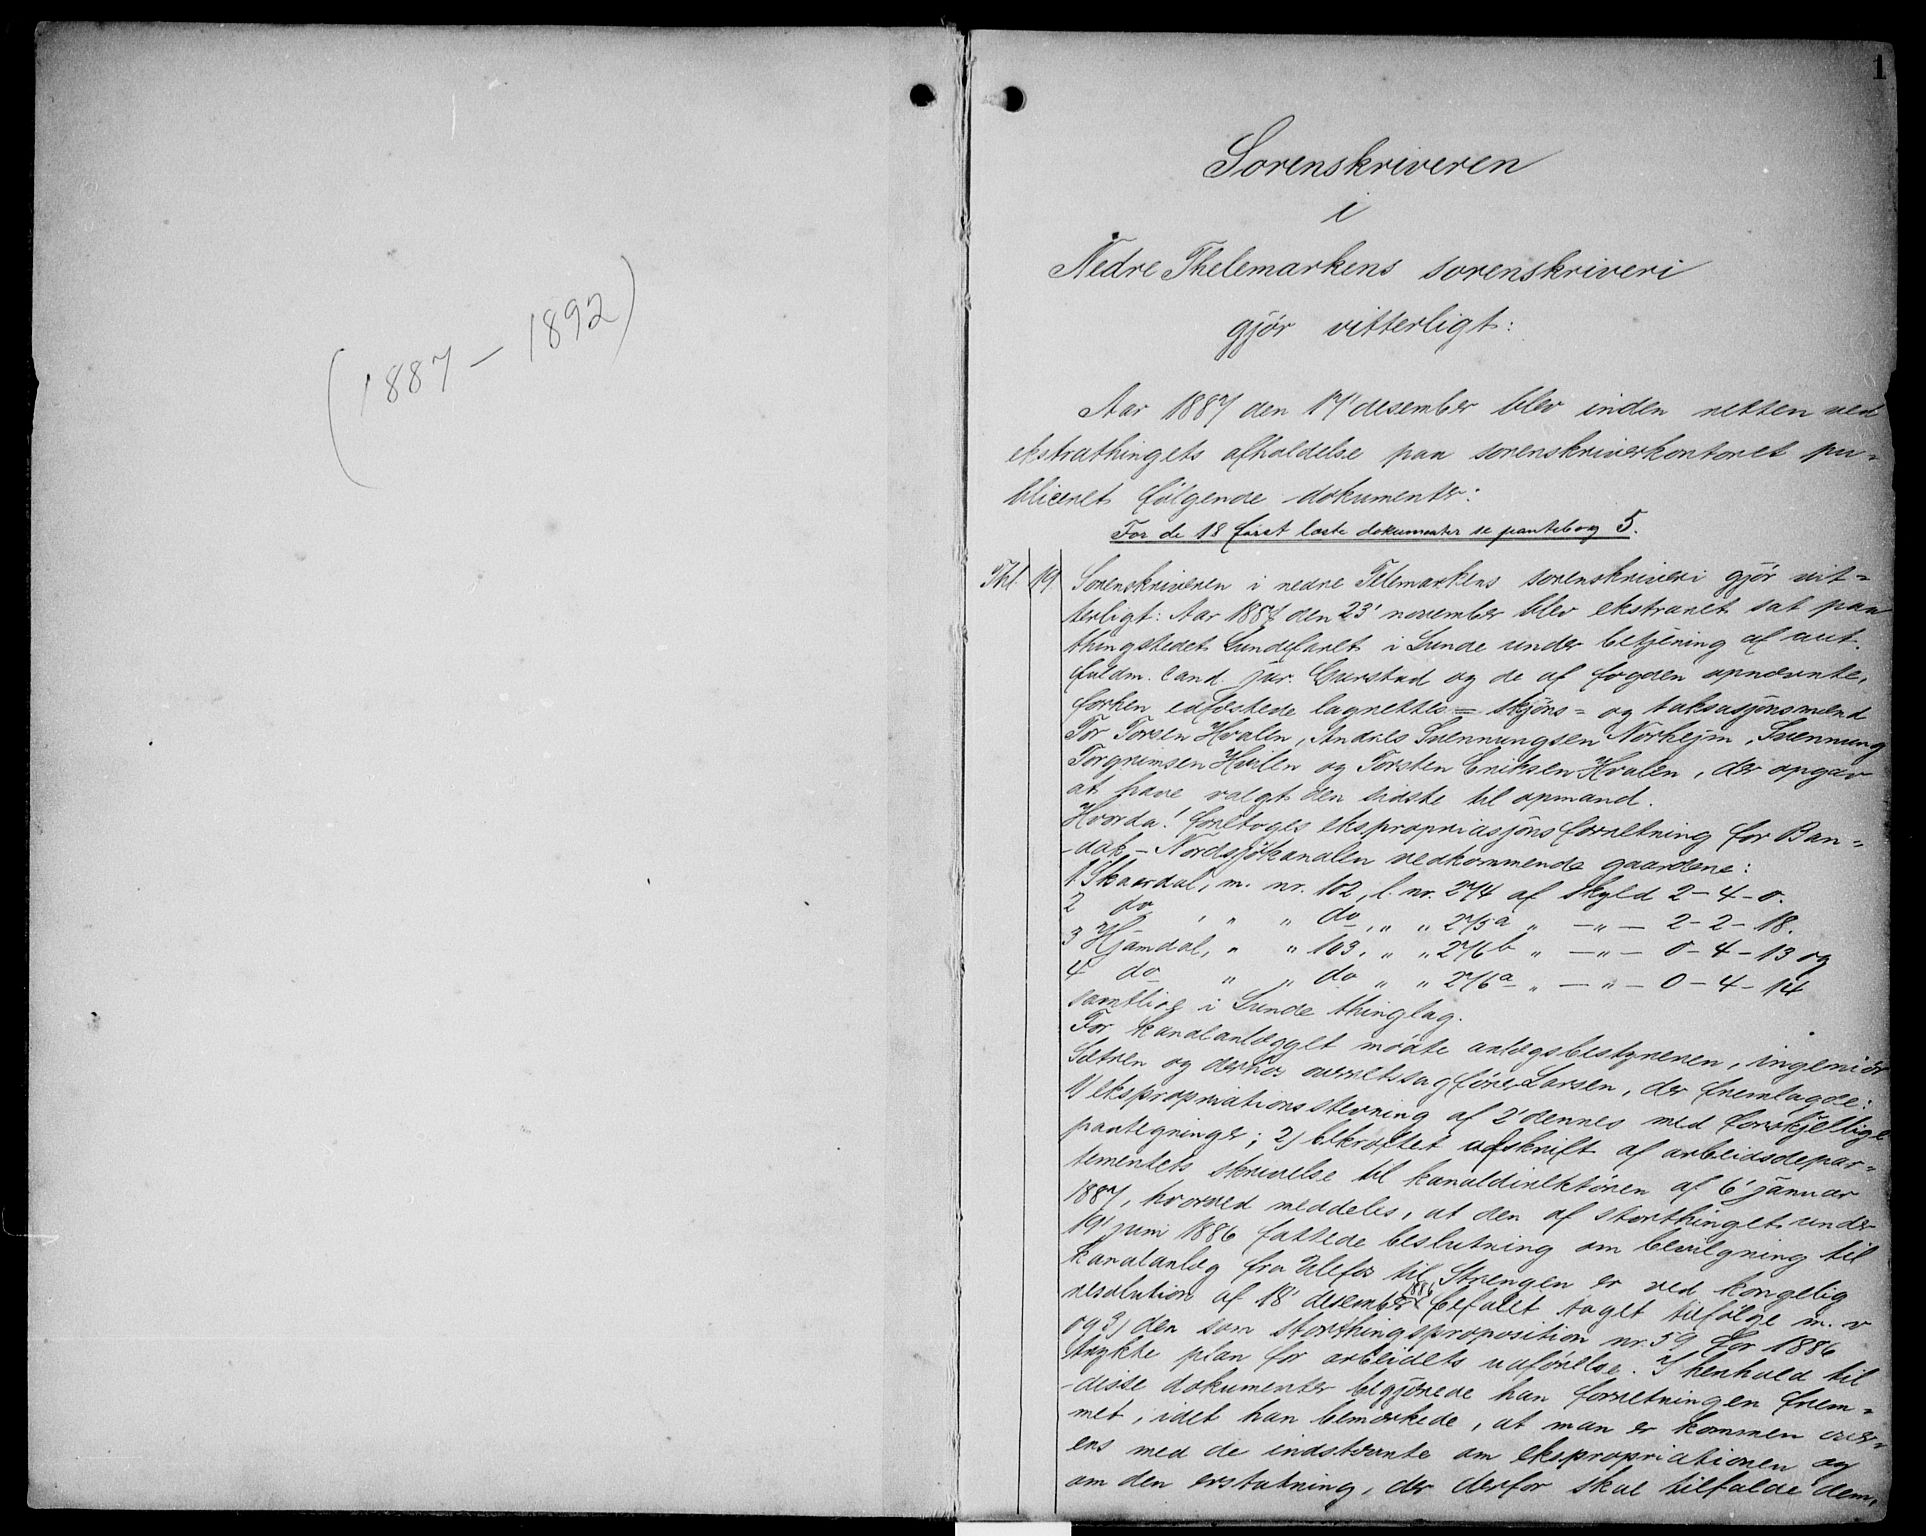 (1887 – 1892)
1
Sorenskriveren
i
Nedre Thelemarkens sorenskriveri
gjør vitterligt:
Aar 1887 den 17' desember blev inden retten ved
ekstrathingets afholdelse paa sorenskriverkontoret pu=
bliceret følgende dokumenter:
For de 18 først læste dokumenter se pantebog 5.
Thl. 19. Sorenskriveren i nedre Telemarkens sorenskriveri gjør vit=
terligt: Aar 1887 den 23' november blev ekstraret sat paa
thingstedet Lundefaret i Lunde under betjening af aut.
fuldm. cand. jur. Gurstad og de af fogden opnævnte,
forhen edfæstede lagrettes= skjøns= og taksasjonsmænd
Tor Torsen Hvalen, Andres Svennungsen Norhejm, Svennung
Torgrimsen Hvalen og Torsten Eriksen Hvalen, der opgav
at have valgt den sidste til opmand.
Hvorda! foretoges ekspropriasjonsforretning for Ban=
dak – Nordsjøkanalen vedkommende gaardene:
1 Skaardal, m. nr. 102, l. nr. 274 af skyld 2 – 4 – 0.
2 do , " " do , " " 275a " – " – 2 – 2 – 18.
3 Hjamdal, " " 103, " " 276b " – " – 0 – 4 – 13 og
4 do " " do " " 276a " – " – 0 – 4 – 14
samtlige i Lunde thinglag.
For kanalanlægget mødte anlægsbestyreren, ingeniør
Sætren og derhos overretssagfører Larsen, der fremlagde:
1) ekspropriationsstevning af 2' dennes med forskjellige
paategninger; 2) bekræftet udskrift af arbeidsdepar=
tementets skrivelse til kanaldirektøren af 6' januar
1887, hvorved meddeles, at den af storthinget under
19' juni 1886 fattede beslutning om bevilgning til
kanalanlæg fra Ulefos til Strengen er ved kongelig
resolution af 18' desember 1886 befalet taget tilfølge m. v
og 3) den som storthingsproposition nr. 59 for 1886
trykte plan for arbeidets udførelse. I henhold til
disse dokumenter begjærede han forretningen frem=
met, idet han bemærkede, at man er kommen over=
ens med de indstevnte om ekspropriationen og
om den erstatning, der derfor skal tilfalde dem,